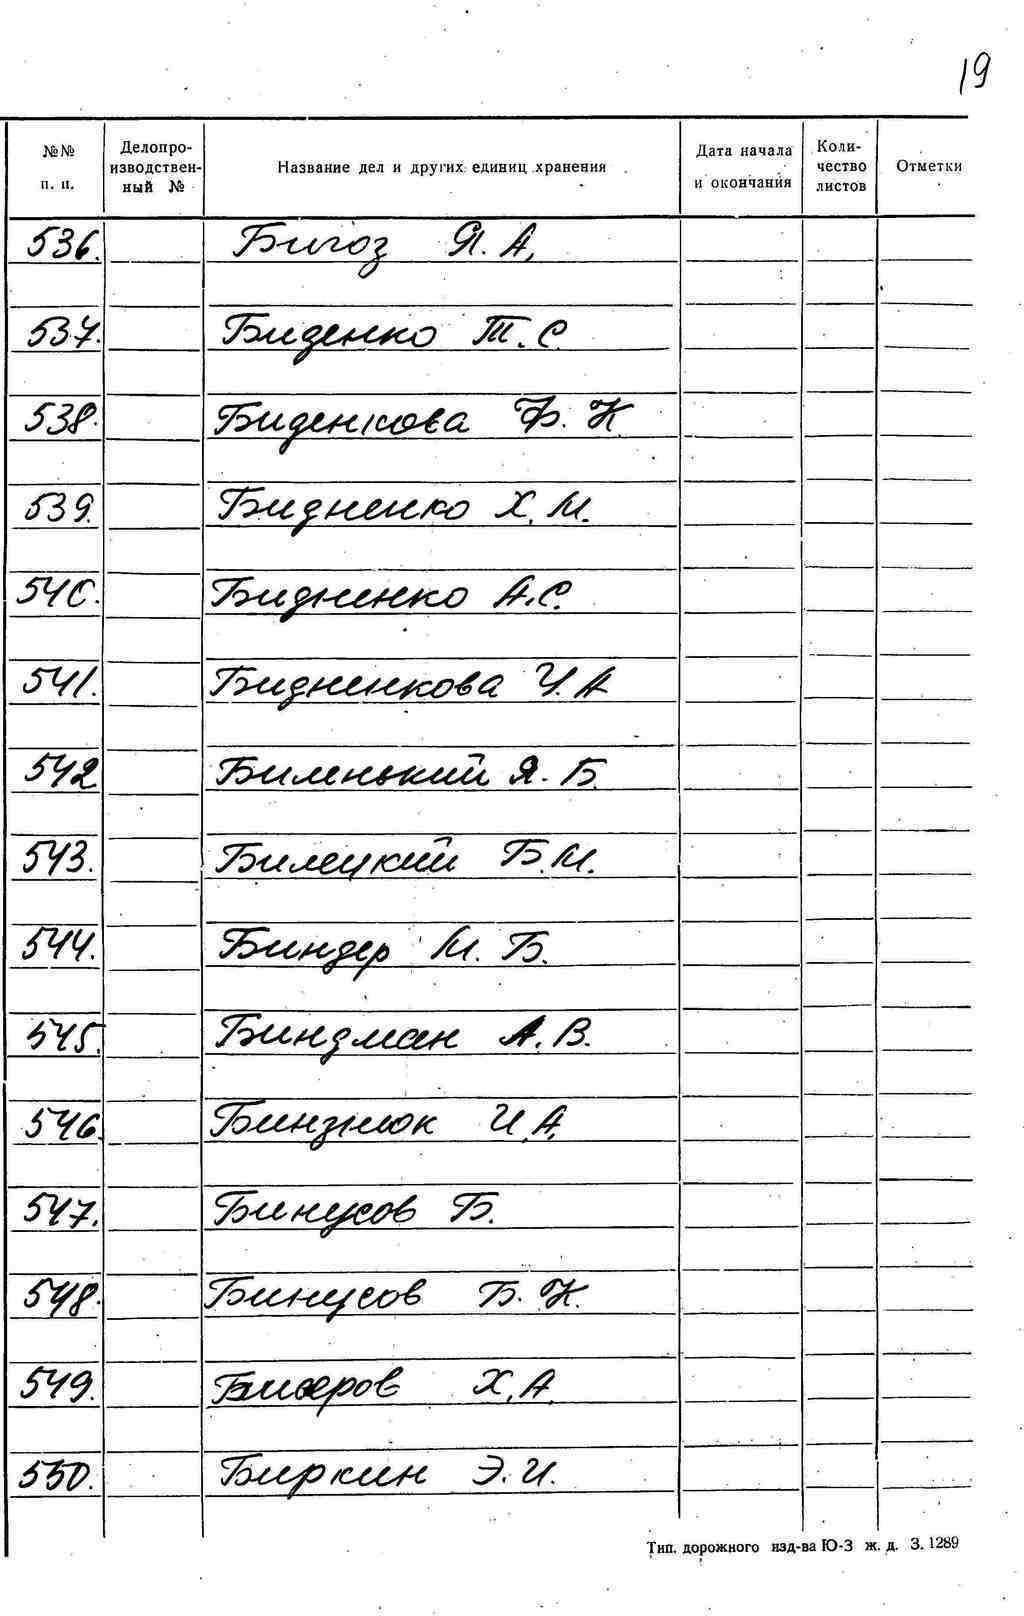 19
№№ п. п. Делопро-изводствен-ный № Название дел и других единиц хранения Дата начала и окончания Коли-чество листов Отметки
536. Бигоз Я. А.
537. Биденко Т. С.
538. Биденкова Ф. К
539. Бидненко Х. М.
540. Бидненко А. С.
541. Бидненкова У. А
542 Биленький Я. Б.
543. Билецкий Б. М.
544. Биндер М. Б.
545. Биндман А. В.
546. Бинзюк И. А.
547. Бинусов Б.
548. Бинусов Б. К.
549. Бисеров Х. А.
550. Биркин Э. И.
Тип. дорожного изд-ва Ю-З ж. д. З. 1289